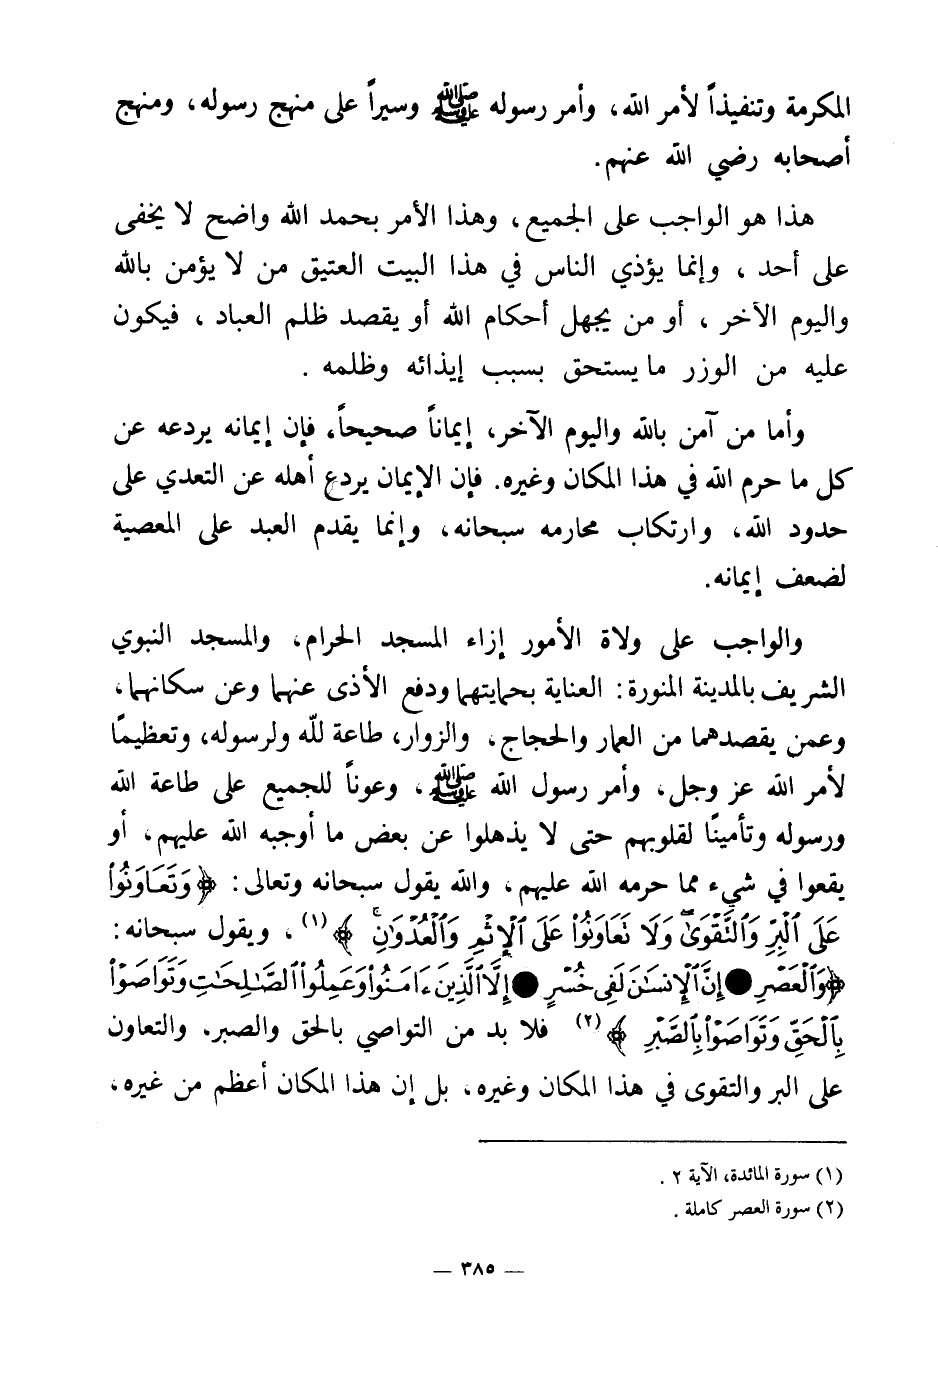 المكرمة وتنفيذاً لأمر الله، وأمر رسوله ﷺ وسيراً على منهج رسوله، ومنهج
أصحابه رضي الله عنهم.
هذا هو الواجب على الجميع، وهذا الأمر بحمد الله واضح لا يخفى
على أحد ، وإنما يؤذي الناس في هذا البيت العتيق من لا يؤمن بالله
واليوم الآخر ، أو من يجهل أحكام الله أو يقصد ظلم العباد ، فيكون
عليه من الوزر ما يستحق بسبب إيذائه وظلمه .
وأما من آمن بالله واليوم الآخر، إيماناً صحيحاً، فإن إيمانه يردعه عن
كل ما حرم الله في هذا المكان وغيره. فإن الإيمان يردع أهله عن التعدي على
حدود الله، وارتكاب محارمه سبحانه، وإنما يقدم العبد على المعصية
لضعف إيمانه.
والواجب على ولاة الأمور إزاء المسجد الحرام، والمسجد النبوي
الشريف بالمدينة المنورة: العناية بحمايتهما ودفع الأذى عنهما وعن سكانهما،
وعمن يقصدهما من العمار والحجاج، والزوار، طاعة للّه ولرسوله، وتعظيمًا
لأمر الله عز وجل، وأمر رسول الله ﷺ ، وعوناً للجميع على طاعة الله
ورسوله وتأمينًا لقلوبهم حتى لا يذهلوا عن بعض ما أوجبه الله عليهم، أو
يقعوا في شيء مما حرمه الله عليهم، والله يقول سبحانه وتعالى: ﴿وَتَعَاوَنُوا۟
عَلَى ٱلْبِرِّ وَٱلتَّقْوَىٰۖ وَلَا تَعَاوَنُوا۟ عَلَى ٱلْإِثْمِ وَٱلْعُدْوَٰنِۚ ﴾(١) ، ويقول سبحانه:
﴿وَٱلْعَصْرِ ● إِنَّ ٱلْإِنسَٰنَ لَفِى خُسْرٍ ● إِلَّا ٱلَّذِينَ ءَامَنُوا۟ وَعَمِلُوا۟ ٱلصَّٰلِحَٰتِ وَتَوَاصَوْا۟
بِٱلْحَقِّ وَتَوَاصَوْا۟ بِٱلصَّبْرِ ﴾(٢) فلا بد من التواصي بالحق والصبر. والتعاون
على البر والتقوى في هذا المكان وغيره، بل إن هذا المكان أعظم من غيره،
(١) سورة المائدة، الآية ٢ .
(٢) سورة العصر كاملة .
— ٣٨٥ —